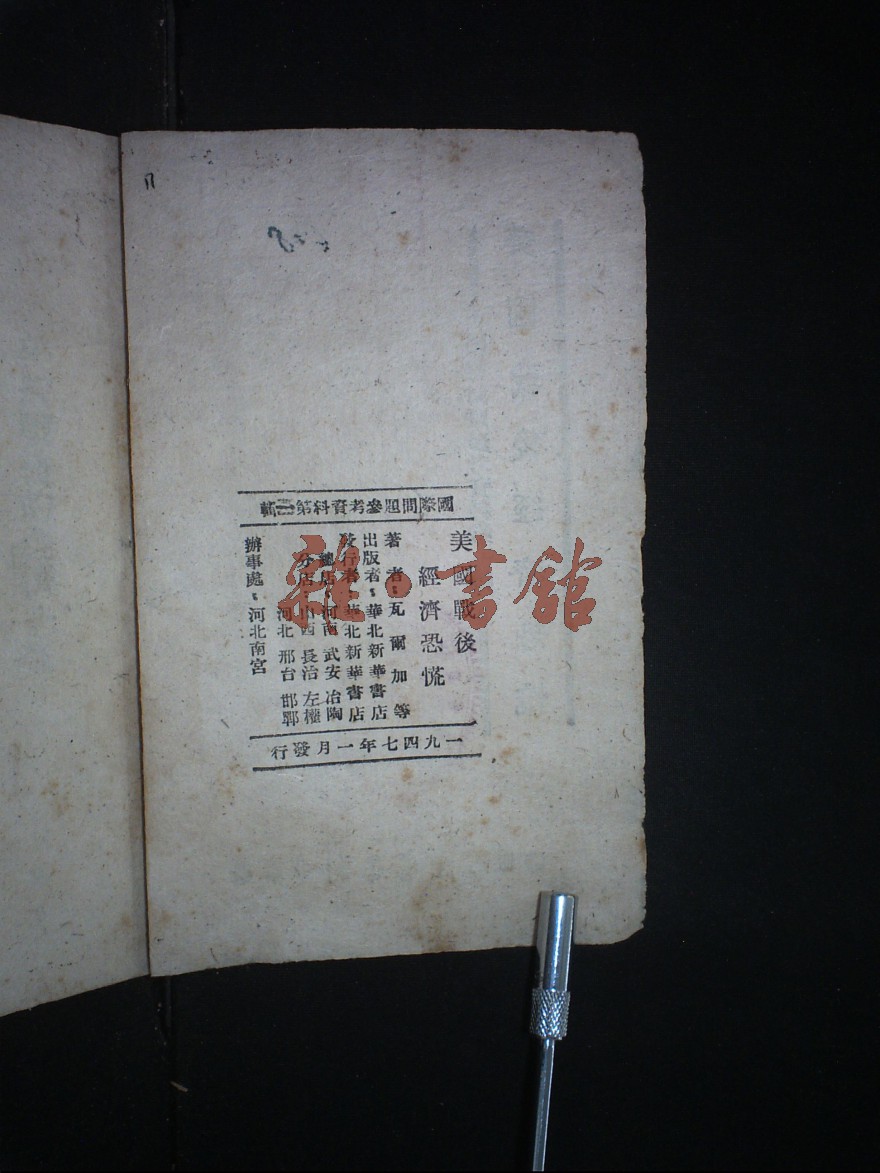 國際問題參考資料第二輯
美國戰後
經濟恐慌
著者：瓦爾加等
出版者：華北新華書店
發行者：華北新華書店
總店：河南 武安 冶陶
分店：山西 長治 左權
河北 邢台 邯鄲
辦事處：河北南宮
一九四七年一月發行
雜·書館